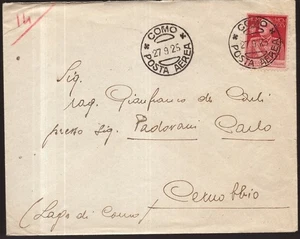 14
COMO
27.9.25
POSTA AEREA
COMO
POSTA AEREA
Sig.
rag. Gianfranco de Carli
presso Sig. Padovani Carlo
Cernobbio
(Lago di Como)